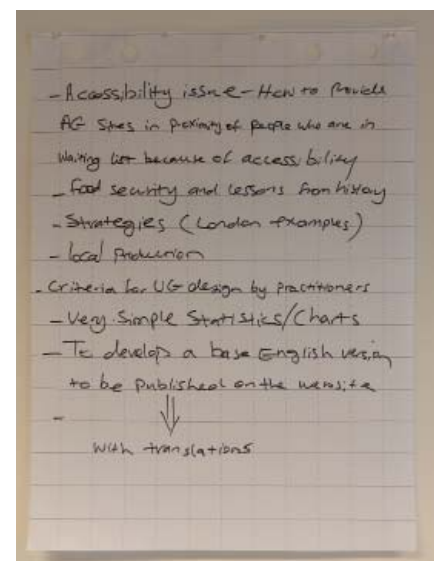 - Accessibility issue - How to provide
AG sites in proximity of people who are in
waiting list because of accessibility
- Food security and lessons from history
- Strategies (London examples)
- local production
- Criteria for UG design by practitioners
- Very Simple Statistics/Charts
- To develop a base English version
to be published on the website
-
⇓
with translations